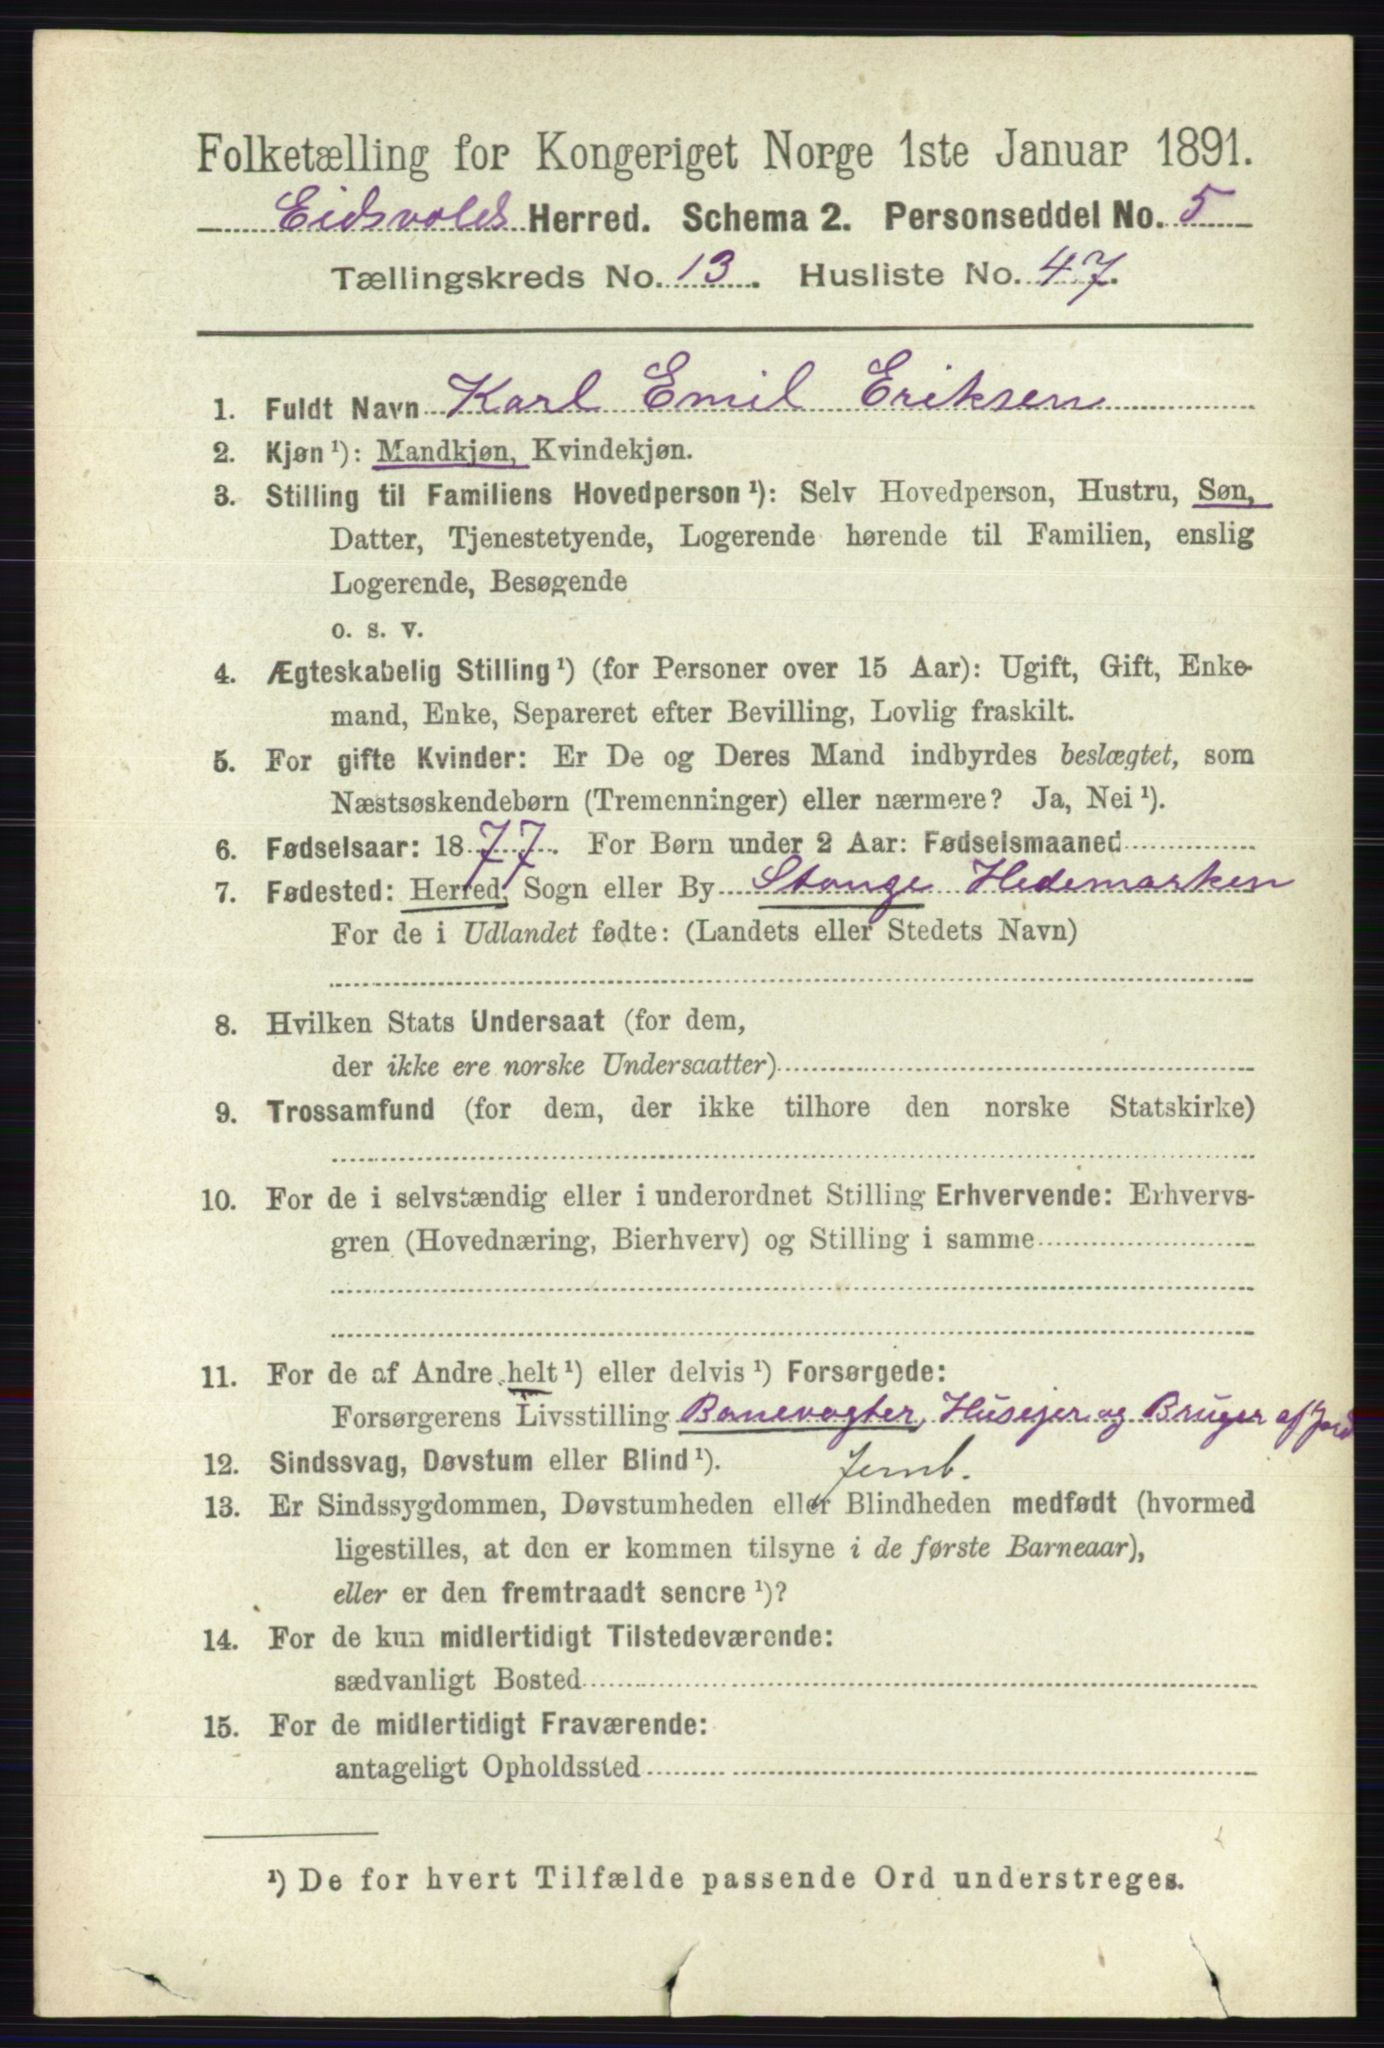 Folketælling for Kongeriget Norge 1ste Januar 1891.
Eidsvolds Herred. Schema 2. Personseddel No. 5
Tællingskreds No. 13. Husliste No. 47.
1. Fuldt Navn Karl Emil Eriksen
2. Kjøn ¹): Mandkjøn, Kvindekjøn.
3. Stilling til Familiens Hovedperson ¹): Selv Hovedperson, Hustru, Søn,
Datter, Tjenestetyende, Logerende hørende til Familien, enslig
Logerende, Besøgende
o. s. v.
4. Ægteskabelig Stilling ¹) (for Personer over 15 Aar): Ugift, Gift, Enke-
mand, Enke, Separeret efter Bevilling, Lovlig fraskilt.
5. For gifte Kvinder: Er De og Deres Mand indbyrdes beslægtet, som
Næstsøskendebørn (Tremenninger) eller nærmere? Ja, Nei ¹).
6. Fødselsaar: 1877. For Børn under 2 Aar: Fødselsmaaned
7. Fødested: Herred, Sogn eller By Stange Hedemarken
For de i Udlandet fødte: (Landets eller Stedets Navn)
8. Hvilken Stats Undersaat (for dem,
der ikke ere norske Undersaatter)
9. Trossamfund (for dem, der ikke tilhøre den norske Statskirke)
10. For de i selvstændig eller i underordnet Stilling Erhvervende: Erhvervs-
gren (Hovednæring, Bierhverv) og Stilling i samme
11. For de af Andre helt ¹) eller delvis ¹) Forsørgede:
Forsørgerens Livsstilling Banevogter, Husejer og Bruger af Jord
12. Sindssvag, Døvstum eller Blind ¹). Jernb.
13. Er Sindssygdommen, Døvstumheden eller Blindheden medfødt (hvormed
ligestilles, at den er kommen tilsyne i de første Barneaar),
eller er den fremtraadt senere ¹)?
14. For de kun midlertidigt Tilstedeværende:
sædvanligt Bosted
15. For de midlertidigt Fraværende:
antageligt Opholdssted
¹) De for hvert Tilfælde passende Ord understreges.